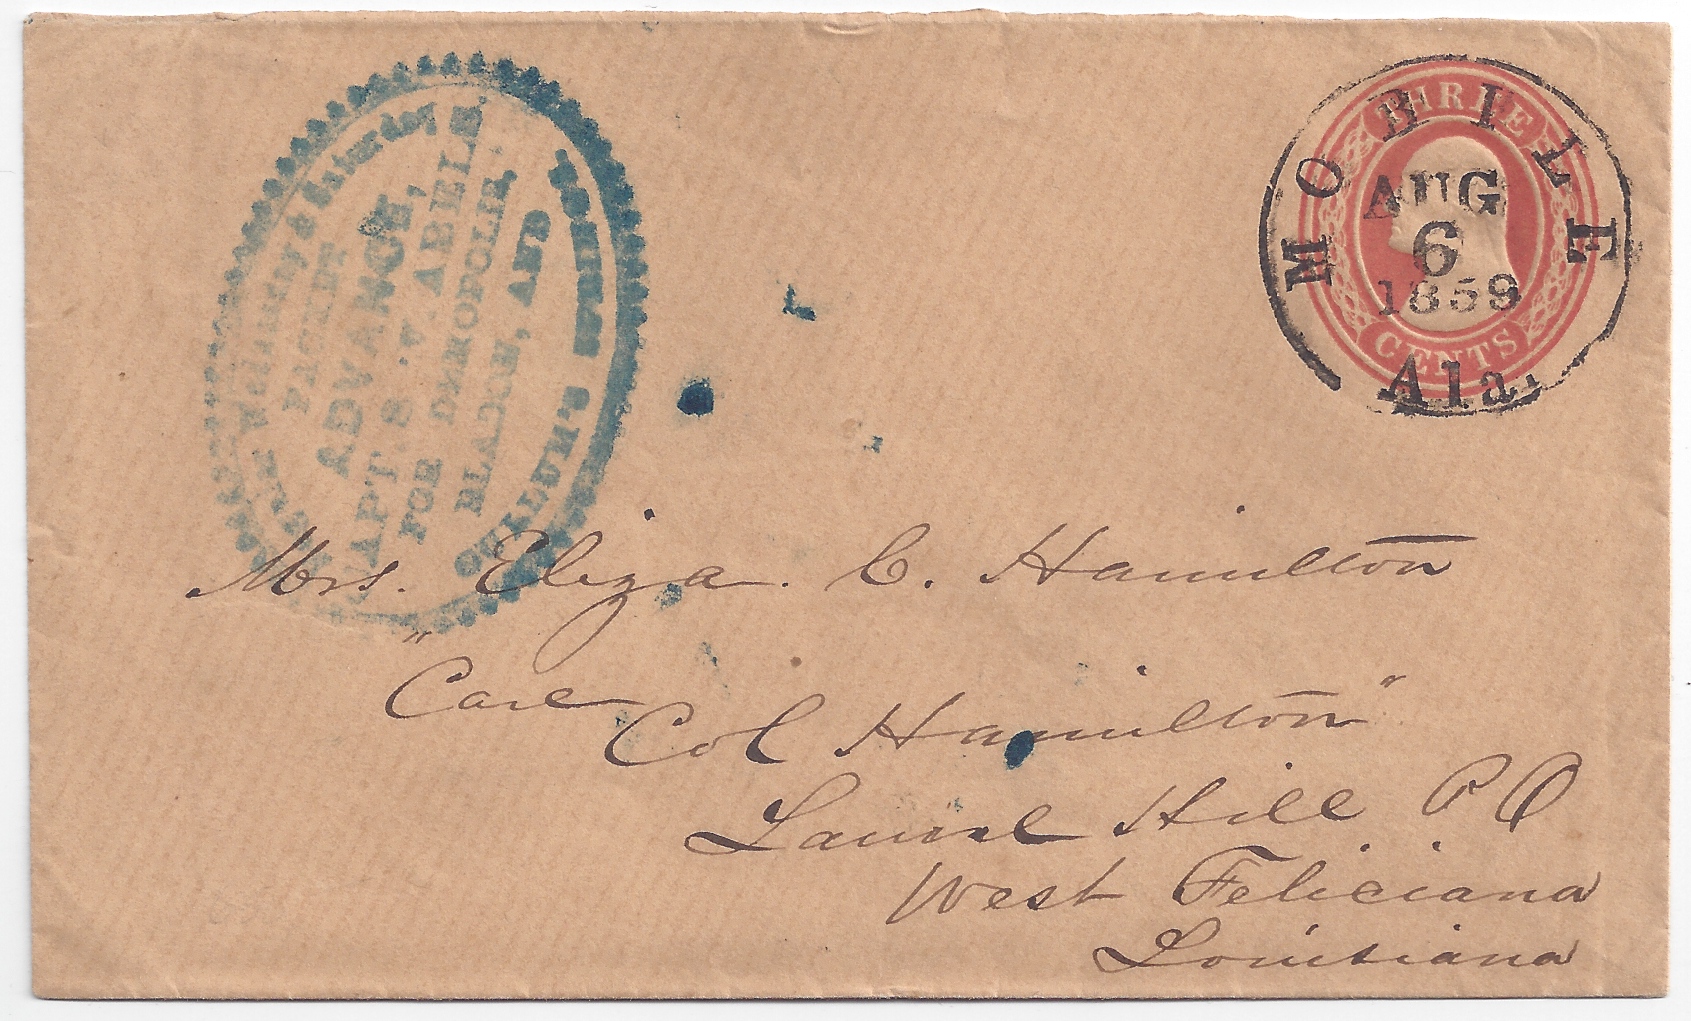 Wednesday & Saturday
PACKET
ADVANCE,
CAPT. S. W. ABELS.
FOR DEMOPOLIS,
BLADON, AND
CULLUM'S SPRINGS
THREE
CENTS
MOBILE
AUG
6
1859
Ala
Mrs. Eliza. C. Hamilton
"Care
Col Hamilton"
Laurel Hill P O
West Feliciana
Louisiana